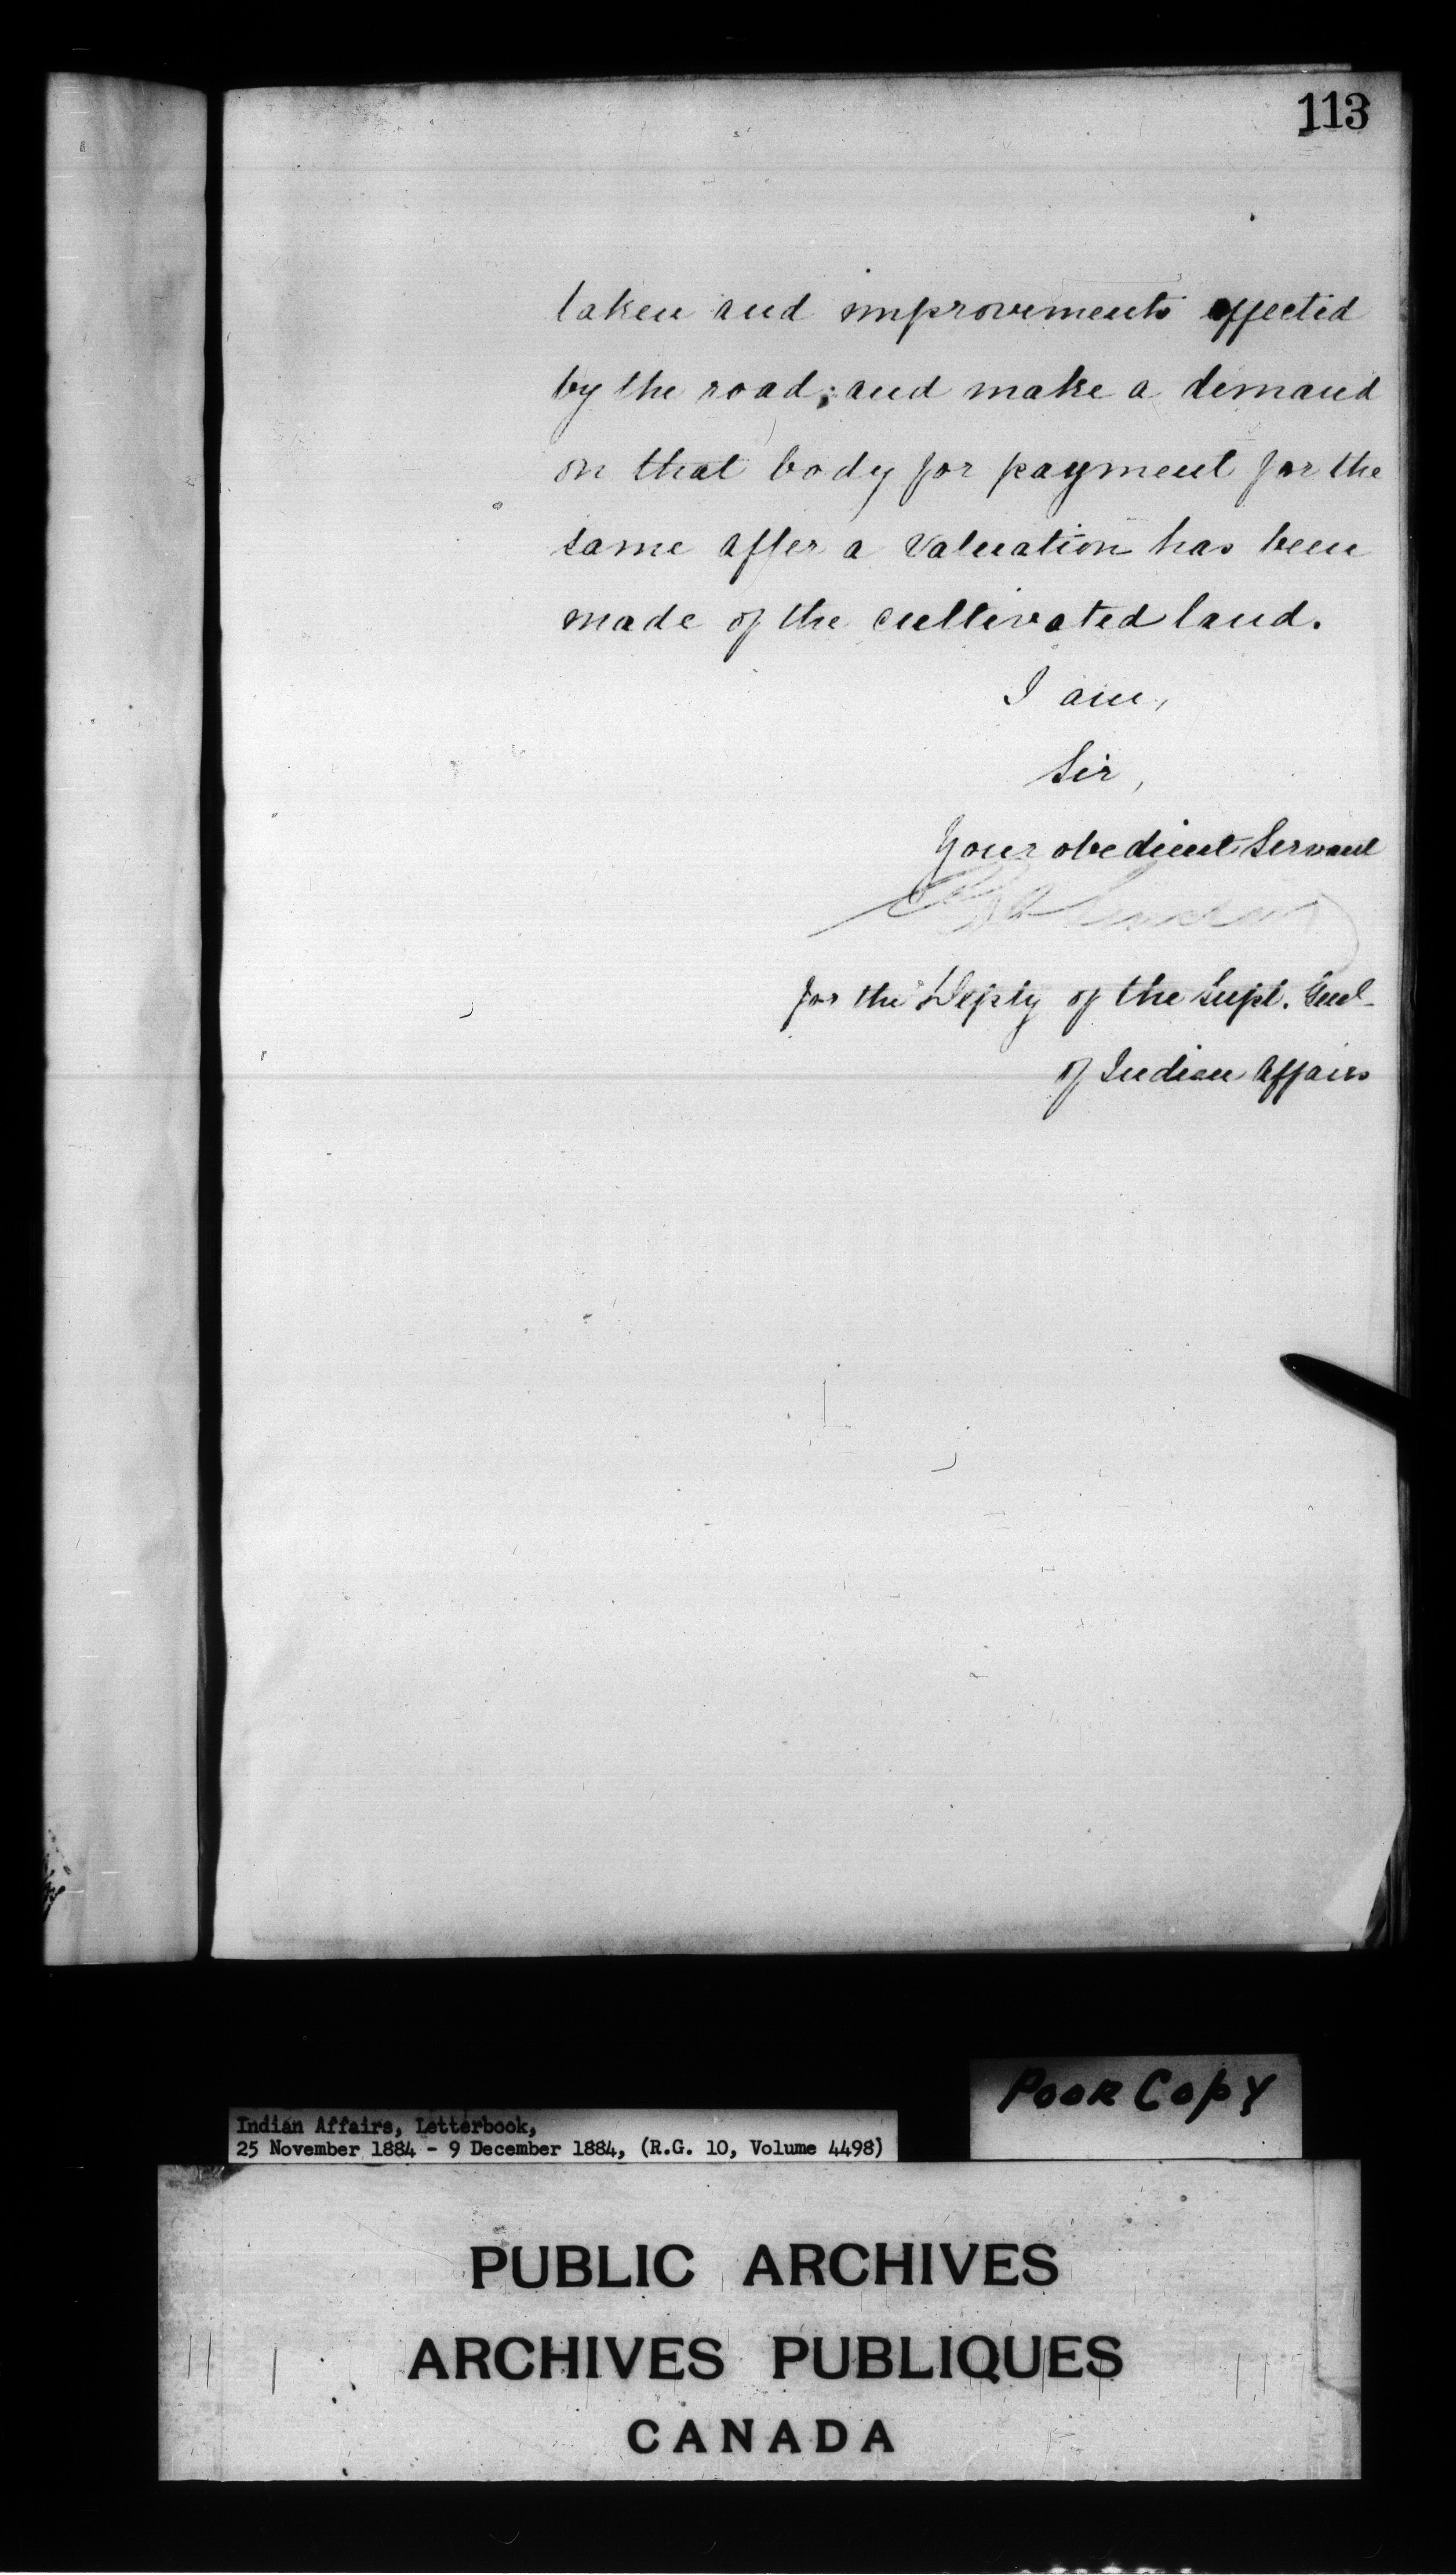 113
taken and improvements effected
by the road; and make a demand
on that body for payment for the
same after a valuation has been
made of the cultivated land.
I am,
Sir,
Your obedient Servant
for the Depty of the Supt. Genl
of Indian Affairs
Poor Copy
Indian Affairs, Letterbook,
25 November 1884 - 9 December 1884, (R.G. 10, Volume 4498)
PUBLIC ARCHIVES
ARCHIVES PUBLIQUES
CANADA